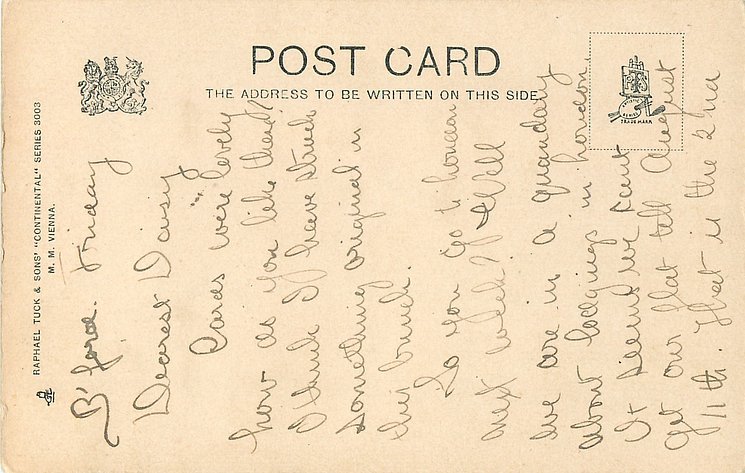 POST CARD
THE ADDRESS TO BE WRITTEN ON THIS SIDE
RAPHAEL TUCK & SONS' "CONTINENTAL" SERIES 3003
M. M. VIENNA.
TRADE MARK
B'ford. Friday
Dearest Daisy
Cards were lovely
how do you like them?
I think I have struck
something original in
this bunch.
So you go to London
next week? Well
we are in a quandary
about lodgings in London.
It seems we can't
get our flat till August
11th. That is the 2nd